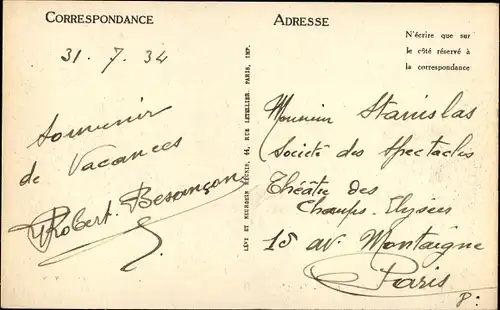 CORRESPONDANCE
31. 7. 34
Souvenir
de Vacances
Robert Besançon
LÉVY ET NEURDEIN RÉUNIS, 44, RUE LETELLIER, PARIS, IMP.
ADRESSE
N'écrire que sur
le côté réservé à
la correspondance
Monsieur Stanislas
Société des Spectacles
Théâtre des
Champs. Elysées
15 av. Montaigne
Paris
P: